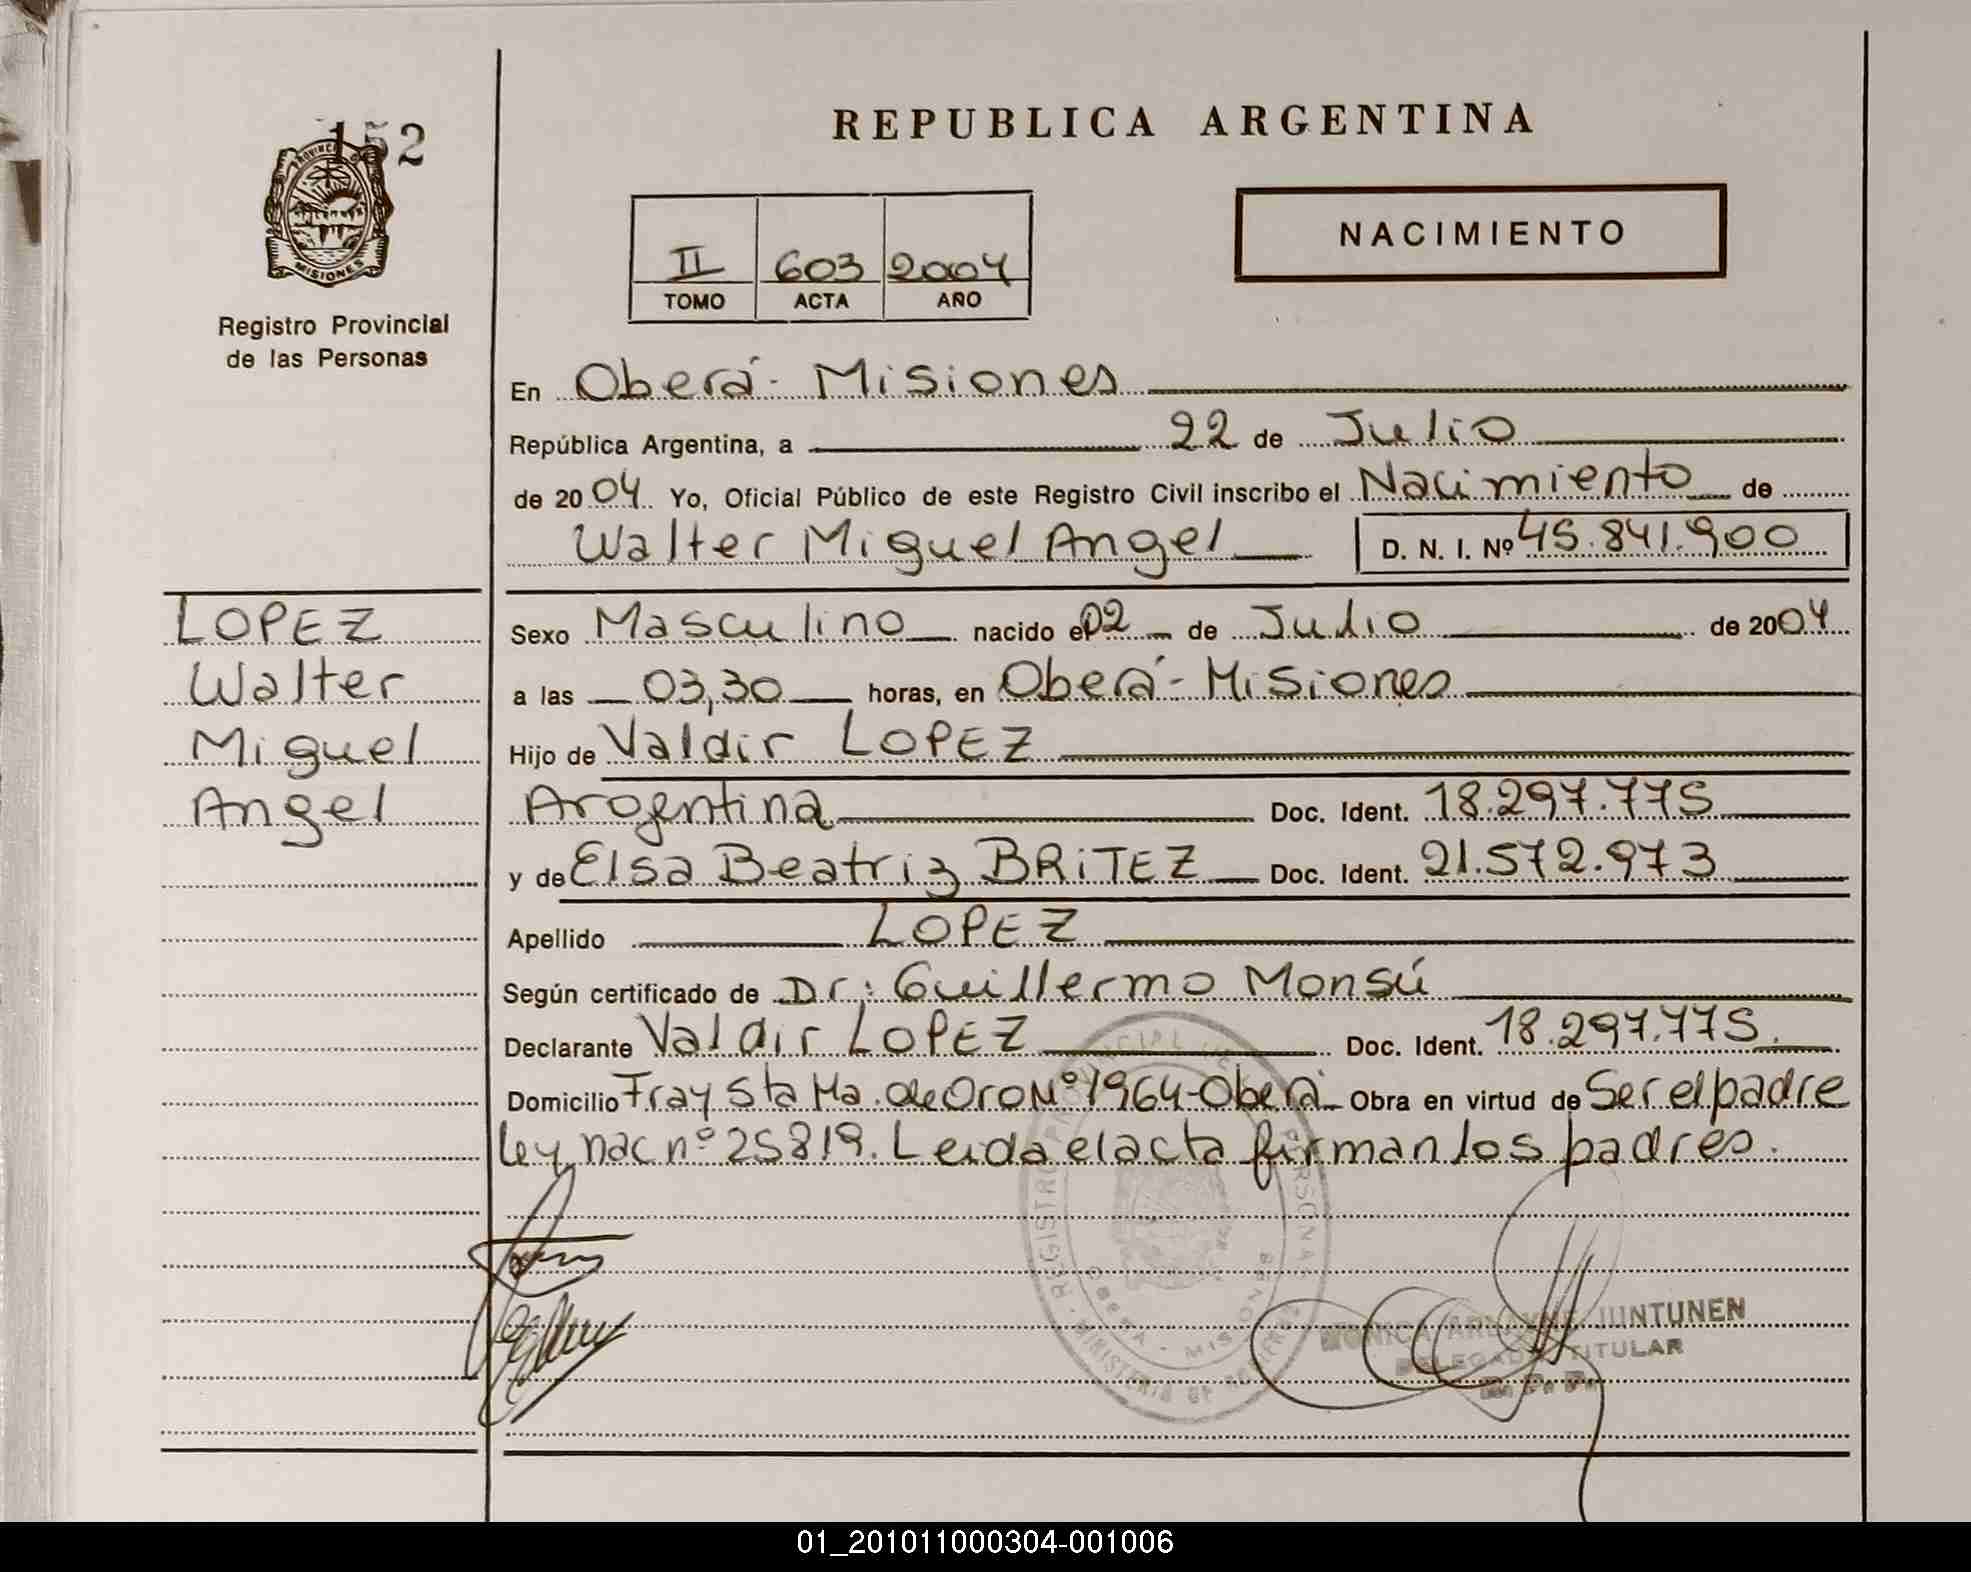 152
PROVINCIA
MISIONES
Registro Provincial
de las Personas
LOPEZ
Walter
Miguel
Angel
REPUBLICA ARGENTINA
II 603 2004
TOMO ACTA AÑO
NACIMIENTO
En Oberá - Misiones
República Argentina, a 22 de Julio
de 2004 Yo, Oficial Público de este Registro Civil inscribo el Nacimiento de
Walter Miguel Angel D. N. I. Nº 45.841.900
Sexo Masculino nacido el 02 de Julio de 2004
a las 03,30 horas, en Oberá - Misiones
Hijo de Valdir LOPEZ
Argentina Doc. Ident. 18.297.775
y de Elsa Beatriz BRITEZ Doc. Ident. 21.572.973
Apellido LOPEZ
Según certificado de Dr: Guillermo Monsú
Declarante Valdir LOPEZ Doc. Ident. 18.297.775.
Domicilio Fray Sta Ma. de Oro Nº 1964-Oberá Obra en virtud de Ser el padre
Ley nac nº 25819. Leida el acta firman los padres.
OBERA - MISIONES
MONICA JUNTUNEN
DELEGADA TITULAR
01_201011000304-001006